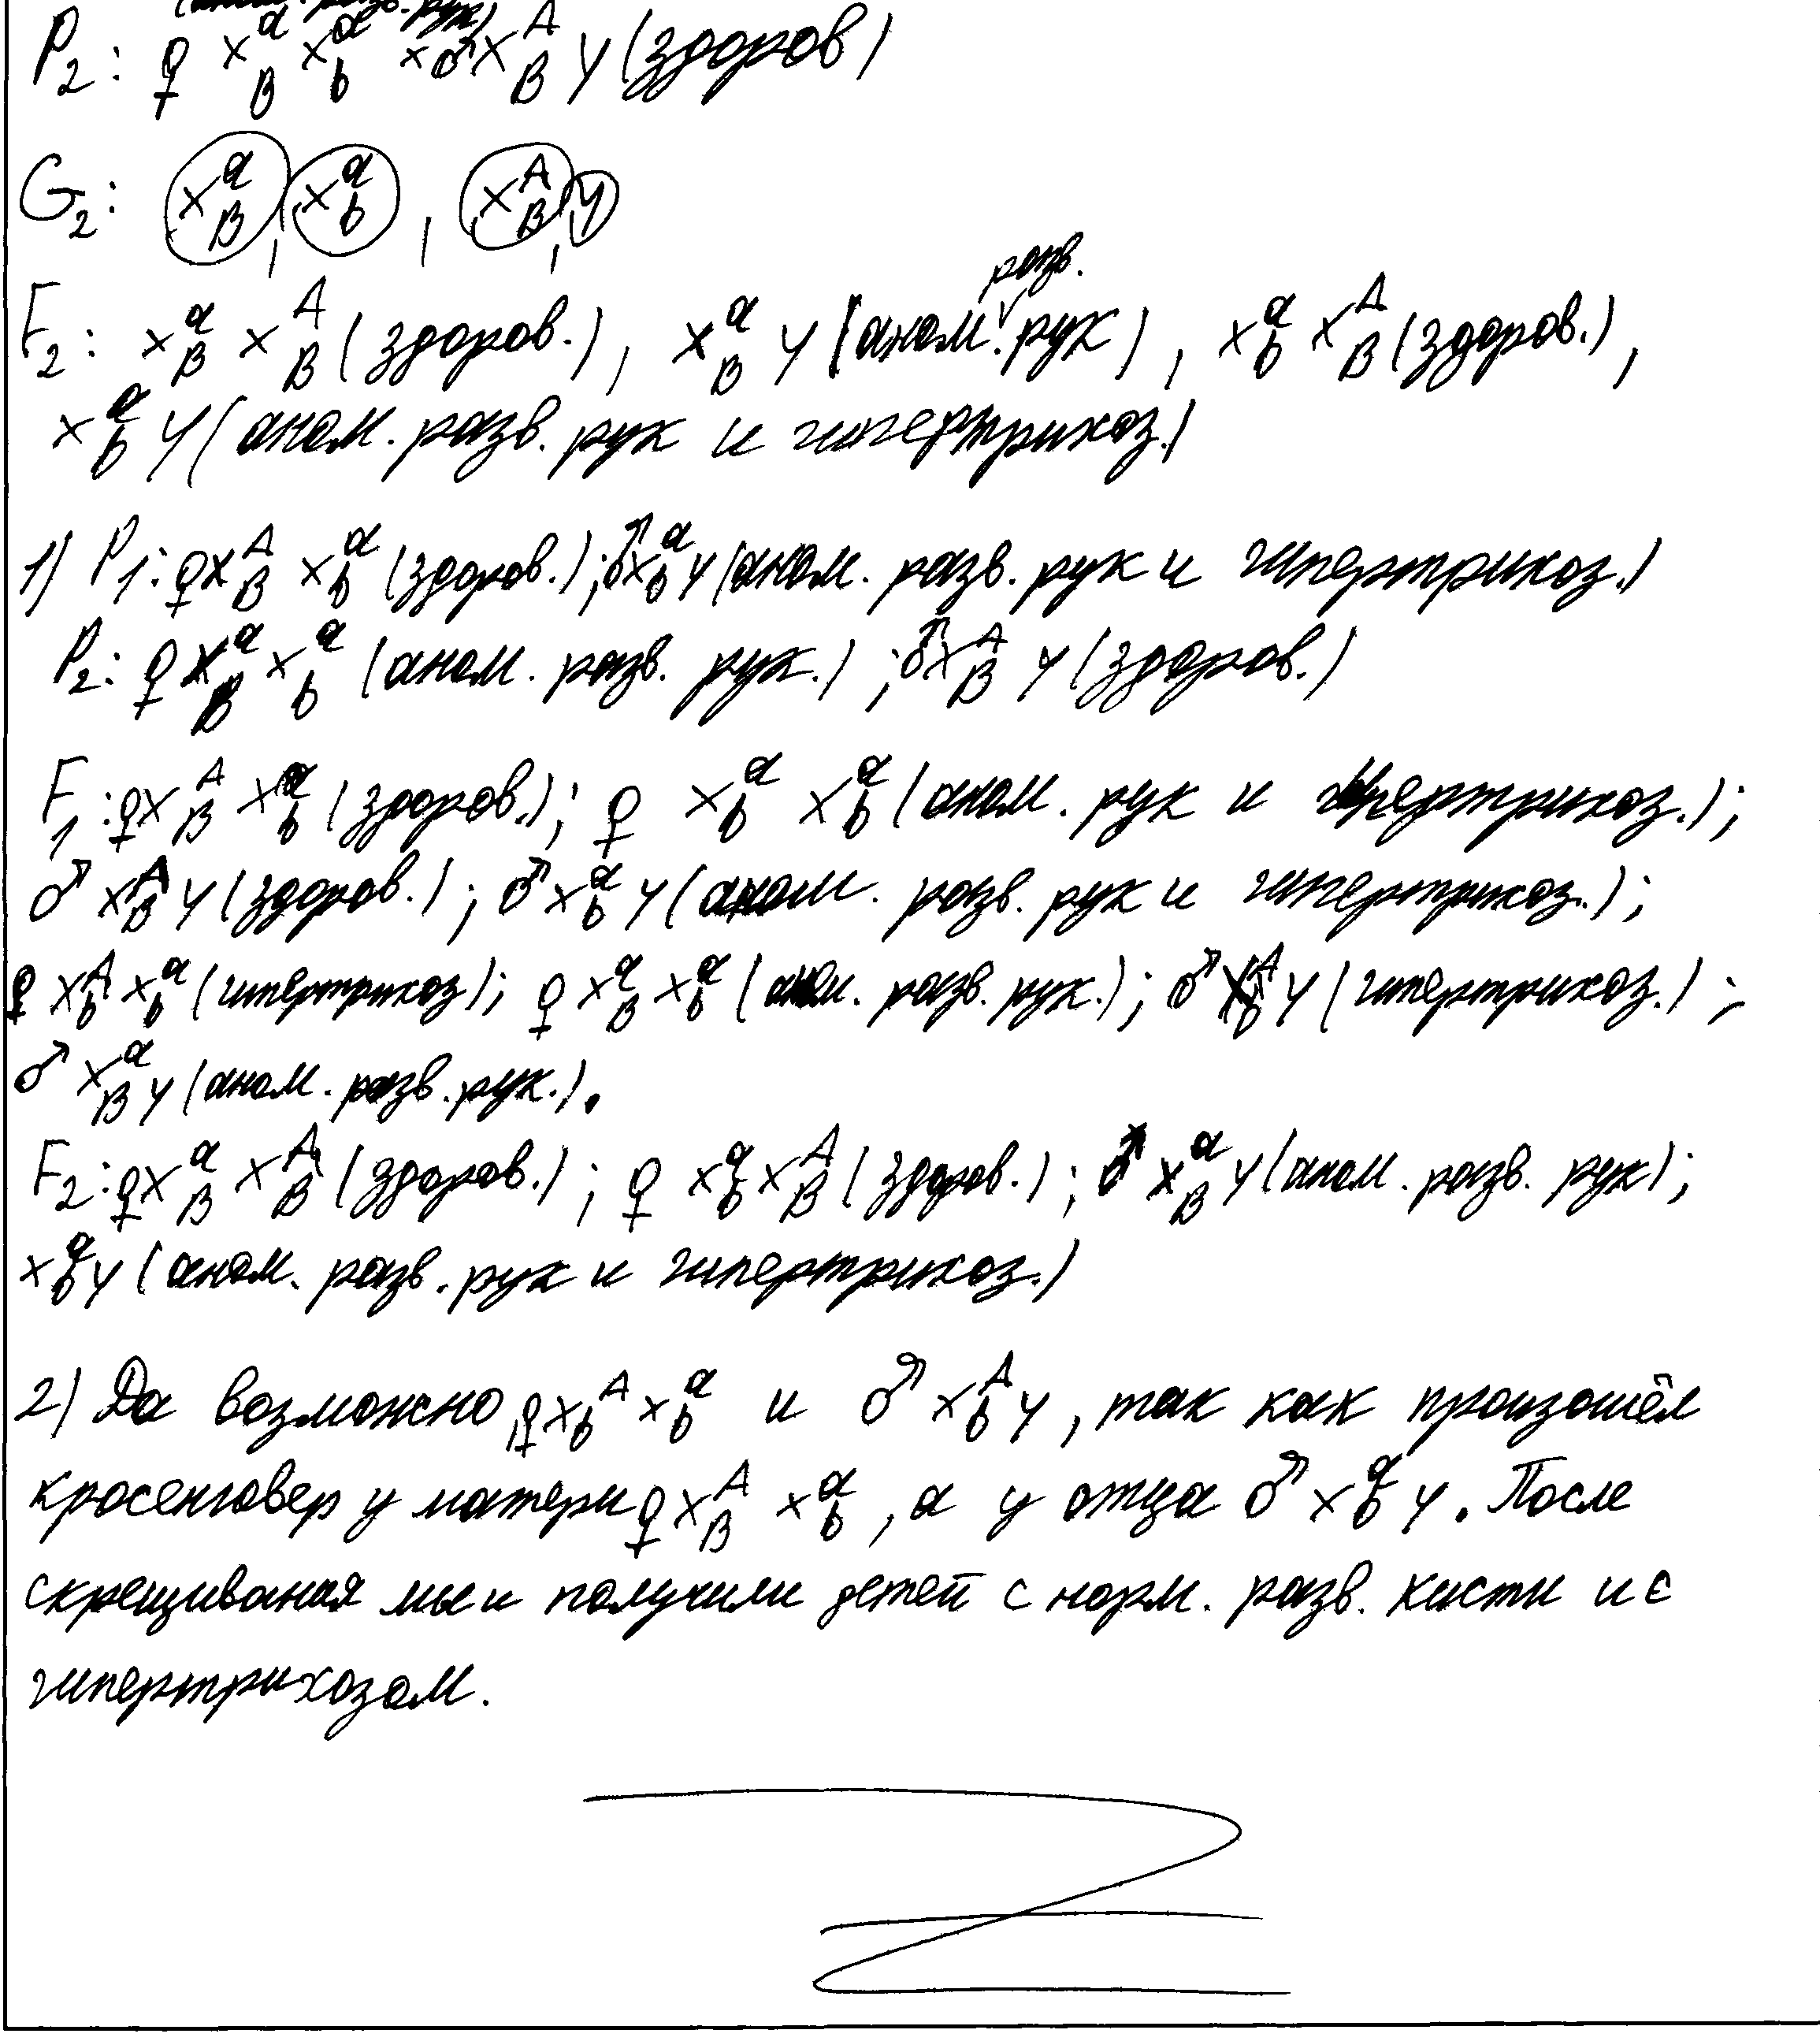 (аном. разв. рук)
P₂: ♀ xᵃ_B xᵃ_b × ♂ xᴬ_B y (здоров)
G₂: xᵃ_B, xᵃ_b, xᴬ_B, y
разв.
F₂: xᵃ_B xᴬ_B (здоров.), xᵃ_B y (аном. рук), xᵃ_b xᴬ_B (здоров.),
xᵃ_b y (аном. разв. рук и гипертрихоз.)
1) P₁: ♀ xᴬ_B xᵃ_b (здоров.); ♂ xᵃ_b y (аном. разв. рук и гипертрихоз.)
P₂: ♀ xᵃ_B xᵃ_b (аном. разв. рук.); ♂ xᴬ_B y (здоров.)
F₁: ♀ xᴬ_B xᵃ_b (здоров.); ♀ xᵃ_b xᵃ_b (аном. рук и гипертрихоз.);
♂ xᴬ_B y (здоров.); ♂ xᵃ_b y (аном. разв. рук и гипертрихоз.);
♀ xᴬ_b xᵃ_b (гипертрихоз); ♀ xᵃ_B xᵃ_b (аном. разв. рук.); ♂ xᴬ_b y (гипертрихоз.);
♂ xᵃ_B y (аном. разв. рук.).
F₂: ♀ xᵃ_B xᴬ_B (здоров.); ♀ xᵃ_b xᴬ_B (здоров.); ♂ xᵃ_B y (аном. разв. рук);
xᵃ_b y (аном. разв. рук и гипертрихоз.)
2) Да возможно, ♀ xᴬ_b xᵃ_b и ♂ xᴬ_b y, так как произошёл
кросенговер у матери ♀ xᴬ_B xᵃ_b, а у отца ♂ xᵃ_b y. После
скрещивания мы и получили детей с норм. разв. кисти и с
гипертрихозом.